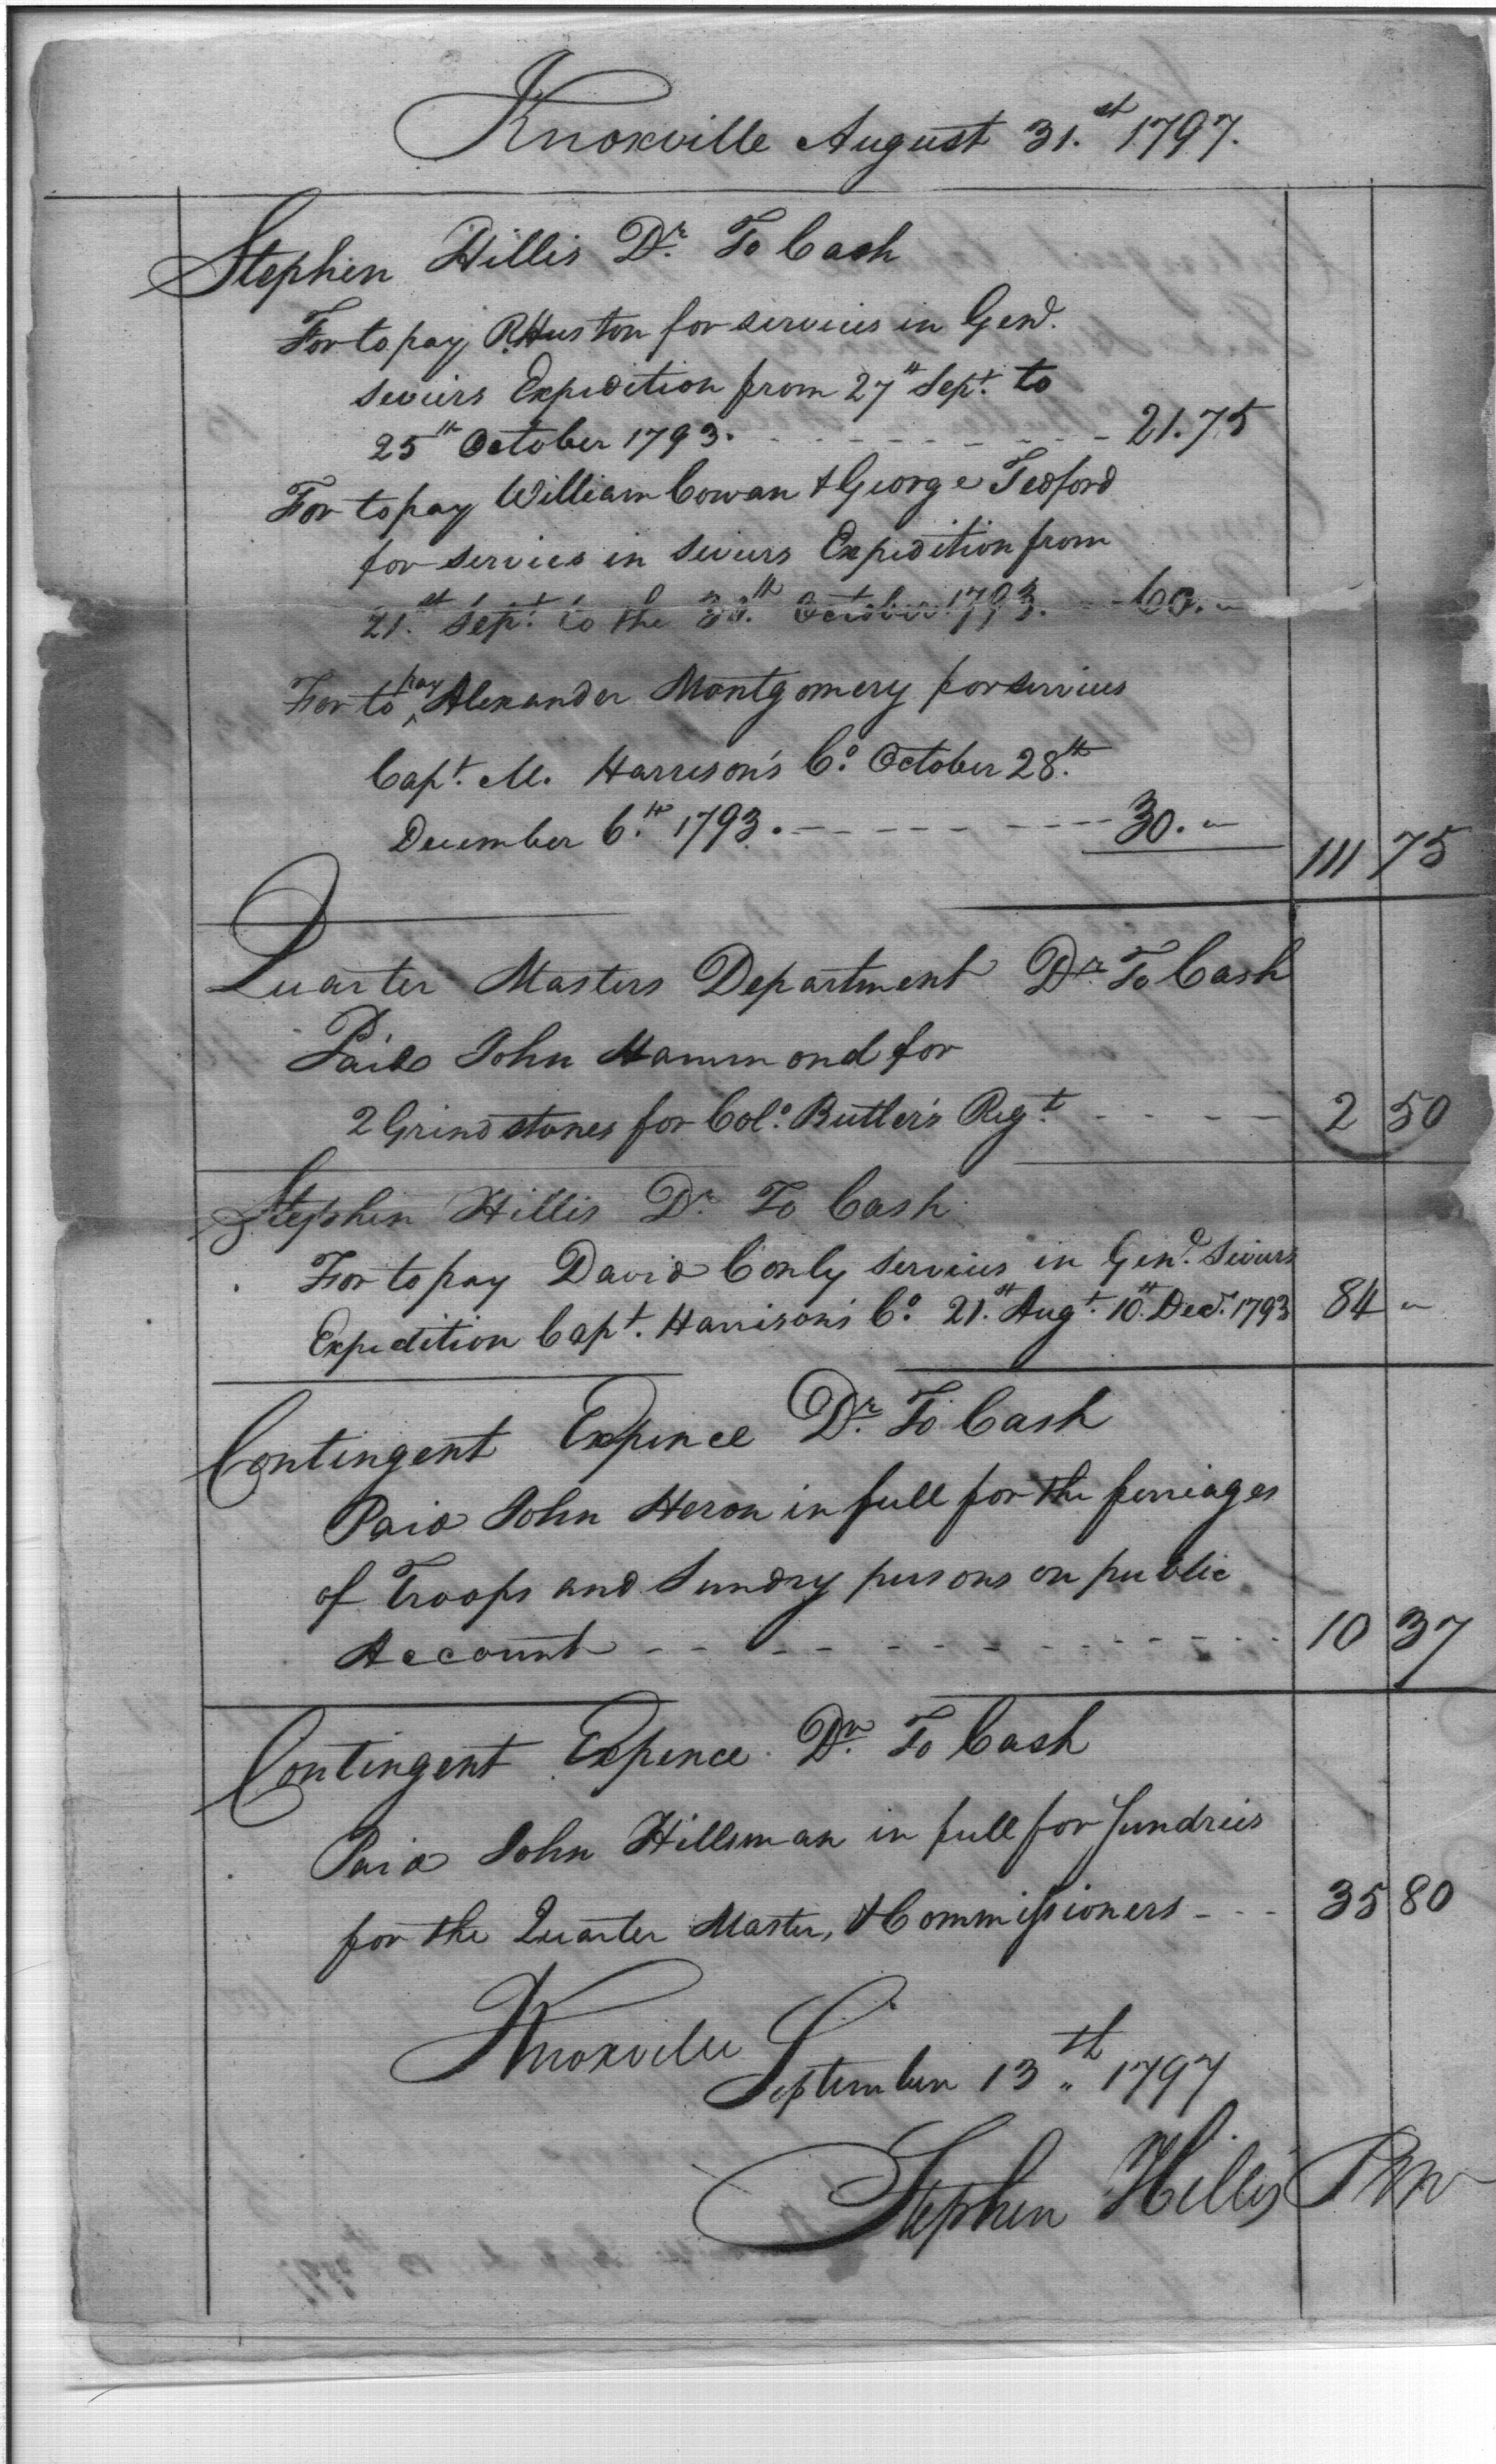 Knoxville August 31.st 1797.
Stephen Hillis Dr. To Cash
For to pay R. Huston for services in Genl.
Seviers Expedition from 27th Sept. to
25th October 1793. - - - - - - - - 21.75
For to pay William Cowan & George Tedford
for services in Seviers Expedition from
21.st Sept. to the 30.th October 1793. - - 60. "
For to pay Alexander Montgomery for services
Capt. M. Harrison's Co. October 28.th
December 6.th 1793. - - - - - - - 30. " 111 75
Quarter Masters Department Dr. To Cash
Paid John Hammond for
2 Grindstones for Colo. Butler's Regt. - - - - 2 50
Stephen Hillis Dr. To Cash
For to pay David Conly services in Genl. Seviers
Expedition Capt. Harrison's Co. 21.st Augt. 10th Decr. 1793 84 "
Contingent Expence Dr. To Cash
Paid John Heron in full for the ferriages
of Troops and Sundry persons on public
Account - - - - - - - - - - - - 10 37
Contingent Expence Dr. To Cash
Paid John Hillsman in full for Sundries
for the Quarter Master, & Commissioners - - - 35 80
Knoxville
September 13th 1797
Stephen Hillis